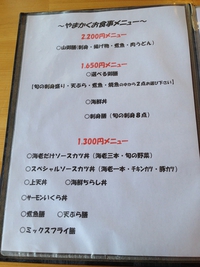 ～やまかくお食事メニュー～
2,200円メニュー
○山御膳(刺身・揚げ物・煮魚・肉うどん)
1,650円メニュー
○選べる御膳
【旬の刺身盛り・天ぷら・煮魚・焼魚の中から2点お選び下さい】
○海鮮丼
○刺身膳（旬の刺身8点）
1,300円メニュー
○海老だけソースカツ丼（海老三本・旬の野菜）
○スペシャルソースカツ丼（海老一本・チキンカツ・豚カツ）
○上天丼　○海鮮ちらし丼
○サーモンいくら丼
○煮魚膳　○天ぷら膳
○ミックスフライ膳